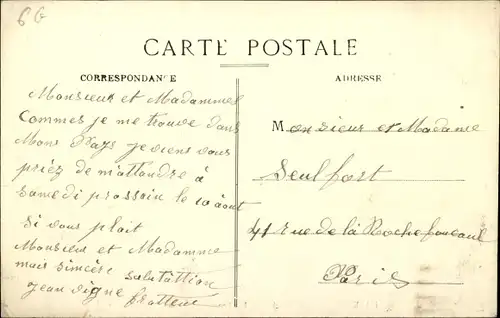 60
CARTE POSTALE
CORRESPONDANCE
ADRESSE
Monsieur et Madammes
Commes je me trouve dans
Mons Pays je viens vous
priéz de m'attandre à
Samedi prossain le 10 août
si vous plait
Monsieur et Madamme
mais sincère salutâttion
jean digne frotteur
Monsieur et Madame
Seulfort
41 rue de la Rochefoucaul
Paris